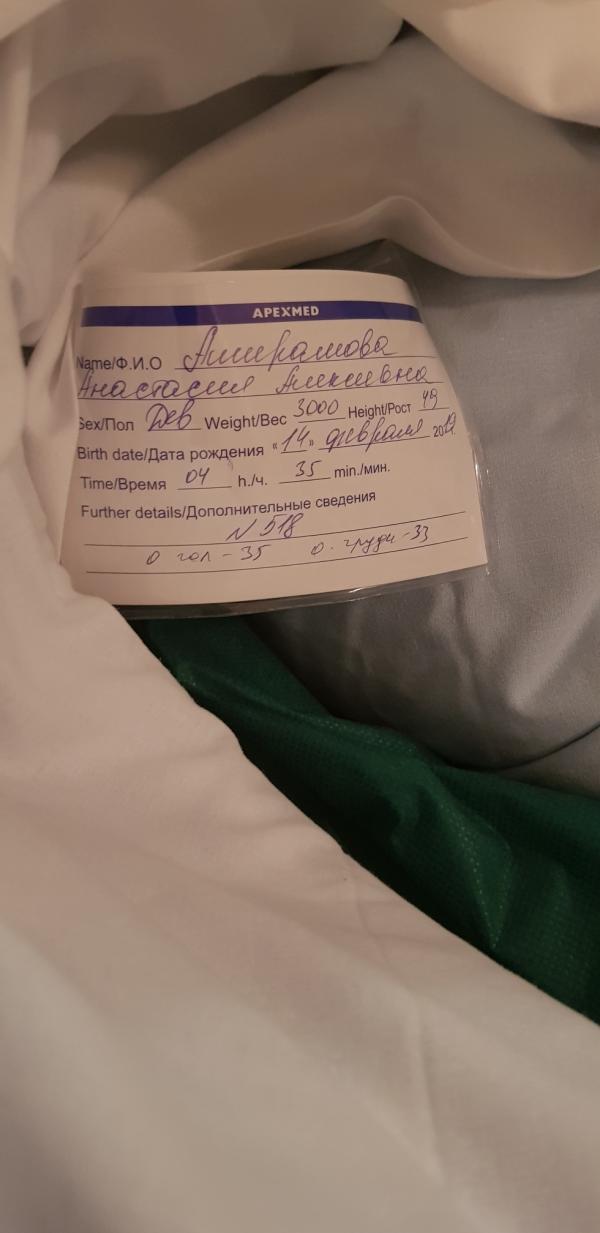 APEXMED
Name/Ф.И.О Амирамова
Анастасия Алексиевна
Sex/Пол Дев Weight/Вес 3000 Height/Рост 49
Birth date/Дата рождения "14" февраля 2019.
Time/Время 04 h./ч. 35 min./мин.
Further details/Дополнительные сведения
N 518
О гол - 35 О. груди - 33